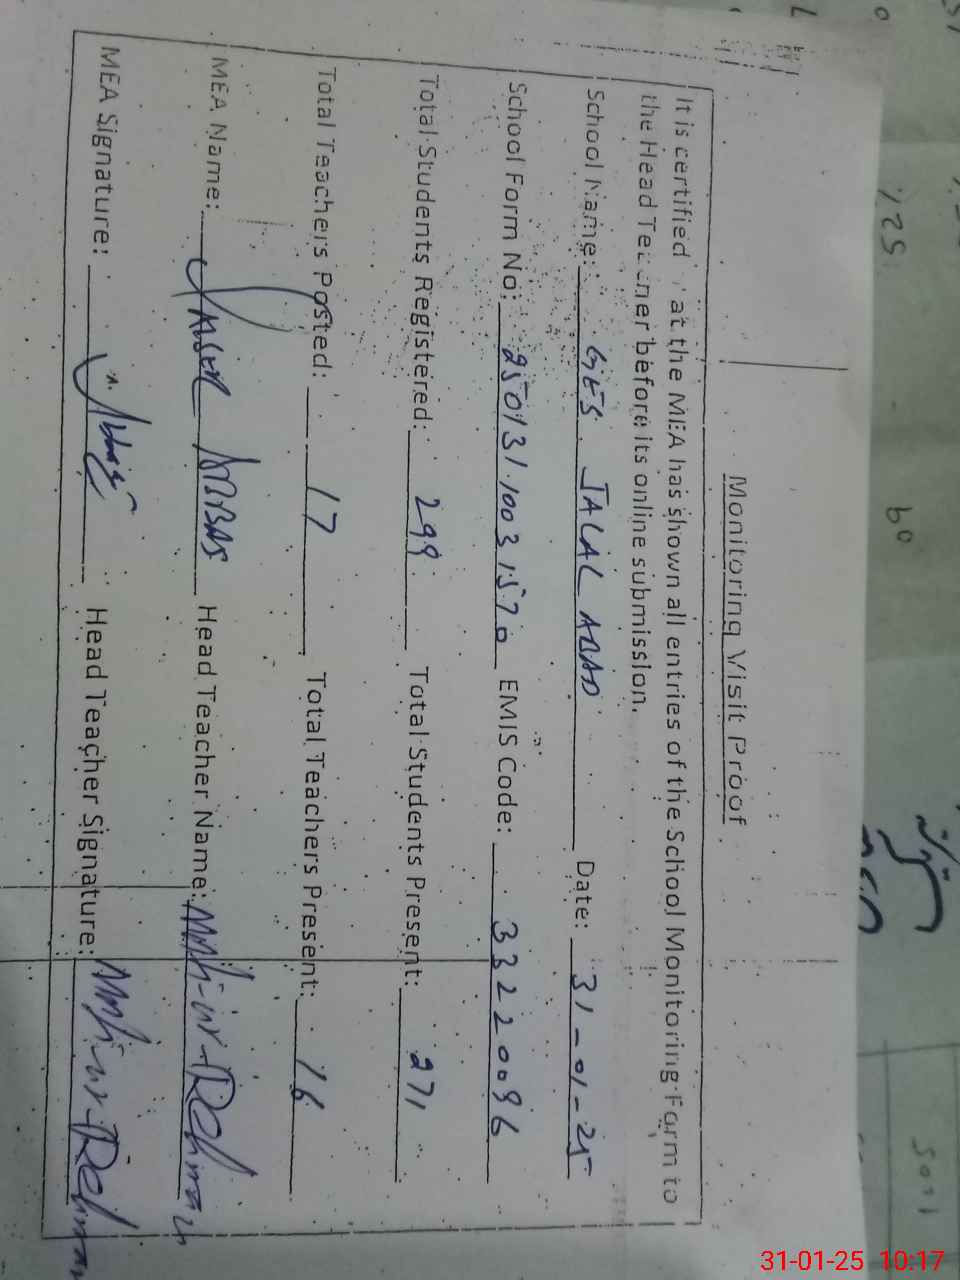 Monitoring Visit Proof
It is certified at the MEA has shown all entries of the School Monitoring Form to
the Head Teacher before its online submission.
School Name: GES JALAL ABAD Date: 31-01-25
School Form No: 250131.1003.1570 EMIS Code: 33220096
Total Students Registered: 299 Total Students Present: 271
Total Teachers Posted: 17 Total Teachers Present: 16
MEA Name: ABBAS Head Teacher Name: -ur-Rehman
MEA Signature: Head Teacher Signature: -ur-Rehman
31-01-25 10:17